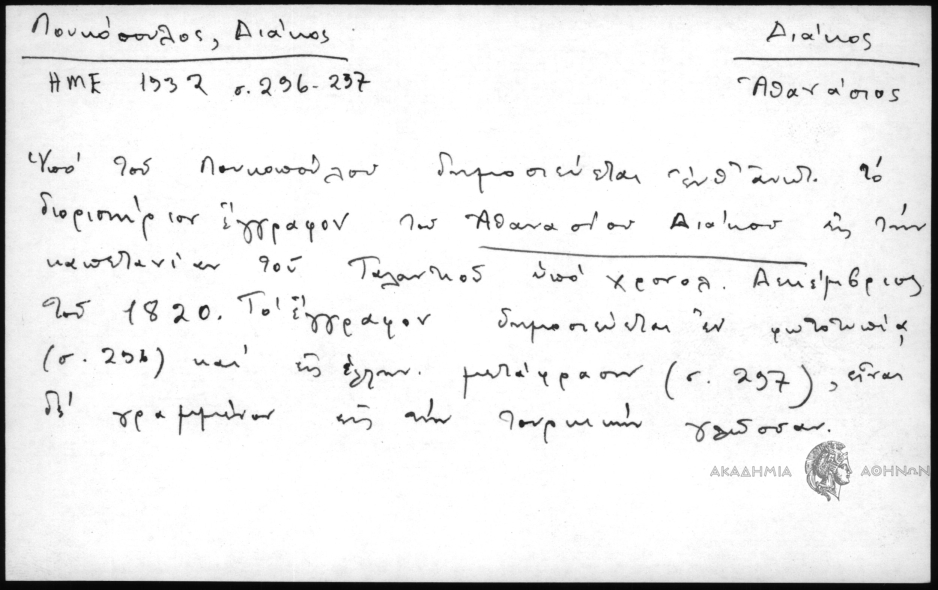 Λουκόπουλος, Διάκος
Διάκος
ΗΜΕ 1932 σ. 296-297
Ἀθανάσιος
Ὑπό τοῦ Λουκοπούλου δημοσιεύεται ἐνθ' ἀνωτ. τό
διοριστήριον ἔγγραφον τοῦ Ἀθανασίου Διάκου εἰς τήν
καπετανίαν τοῦ Ταλαντιοῦ ὑπό χρονολ. Δεκέμβριος
τοῦ 1820. Τό ἔγγραφον δημοσιεύεται ἐν φωτοτυπίᾳ
(σ. 296) καί εἰς ἑλλην. μετάφρασιν (σ. 297), εἶναι
δέ γραμμένον εἰς τήν τουρκικήν γλῶσσαν.
ΑΚΑΔΗΜΙΑ ΑΘΗΝΩΝ